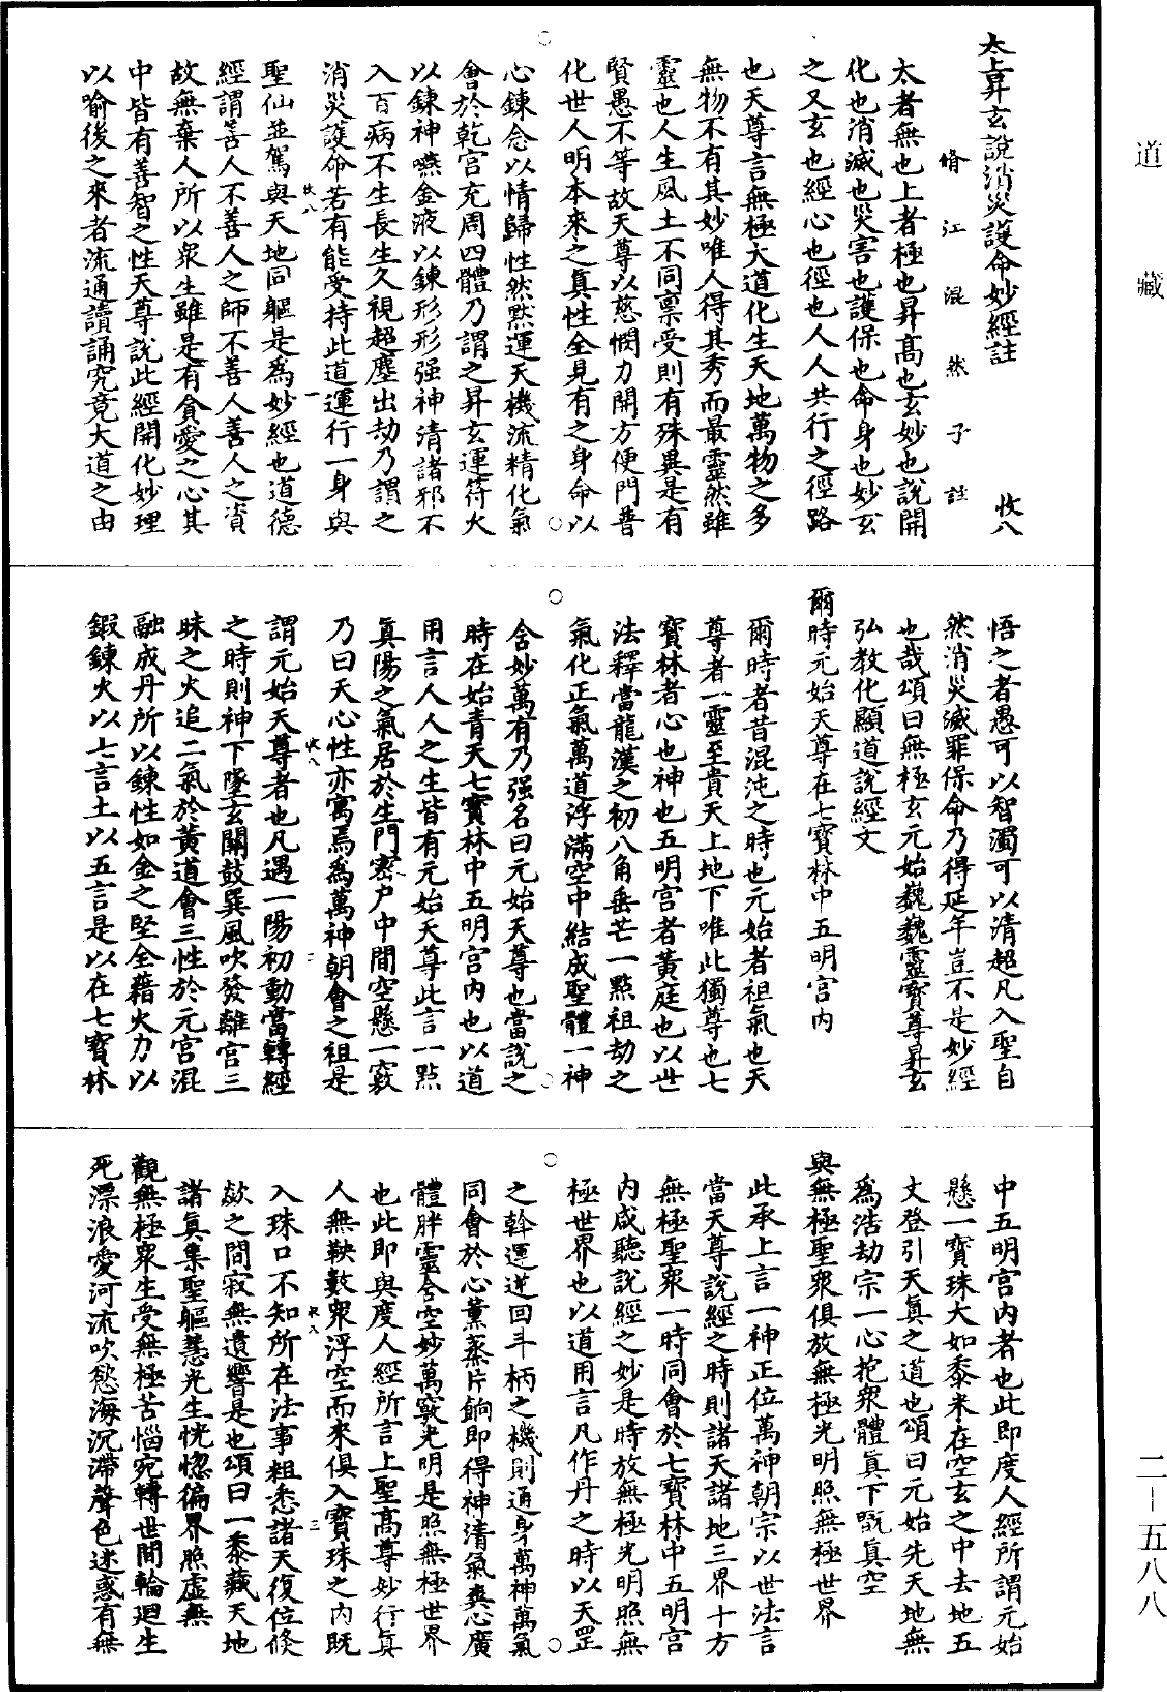 道藏
太上昇玄說消災護命妙經註 收八
脩江混然子註
太者無也上者極也昇高也玄妙也說開
化也消滅也災害也護保也命身也妙玄
之又玄也經心也徑也人人共行之徑路
也天尊言無極大道化生天地萬物之多
無物不有其妙唯人得其秀而最靈然雖
靈也人生風土不同禀受則有殊異是有
賢愚不等故天尊以慈憫力開方便門普
化世人明本來之真性全見有之身命以
心鍊念以情歸性然默運天機流精化氣
會於乾宮充周四體乃謂之昇玄運符火
以鍊神嚥金液以鍊形形强神清諸邪不
入百病不生長生久視超塵出劫乃謂之
消災護命若有能受持此道運行一身與
收八 一
聖仙並駕與天地同軀是為妙經也道德
經謂善人不善人之師不善人善人之資
故無棄人所以眾生雖是有貪愛之心其
中皆有善智之性天尊說此經開化妙理
以喻後之來者流通讀誦究竟大道之由
悟之者愚可以智濁可以清超凡入聖自
然消災滅罪保命乃得延年豈不是妙經
也哉頌曰無極玄元始巍巍靈寶尊昇玄
弘教化顯道說經文
爾時元始天尊在七寶林中五明宮內
爾時者昔混沌之時也元始者祖氣也天
尊者一靈至貴天上地下唯此獨尊也七
寶林者心也神也五明宮者黃庭也以世
法釋當龍漢之初八角垂芒一點祖劫之
氣化正氣萬道浮滿空中結成聖體一神
含妙萬有乃强名曰元始天尊也當說之
時在始青天七寶林中五明宮內也以道
用言人人之生皆有元始天尊此言一點
真陽之氣居於生門密户中間空懸一竅
乃曰天心性亦寓焉為萬神朝會之祖是
收八 二
謂元始天尊者也凡遇一陽初動當轉經
之時則神下墜玄關鼓巽風吹發離宮三
昧之火追二氣於黃道會三性於元宮混
融成丹所以鍊性如金之堅全藉火力以
鍛鍊火以七言土以五言是以在七寶林
中五明宮內者也此即度人經所謂元始
懸一寶珠大如黍米在空玄之中去地五
丈登引天真之道也頌曰元始先天地無
為浩劫宗一心抱眾體真下既真空
與無極聖眾俱放無極光明照無極世界
此承上言一神正位萬神朝宗以世法言
當天尊說經之時則諸天諸地三界十方
無極聖眾一時同會於七寶林中五明宮
內咸聽說經之妙是時放無極光明照無
極世界也以道用言凡作丹之時以天罡
之斡運逆回斗柄之機則通身萬神萬氣
同會於心薰蒸片餉即得神清氣爽心廣
體胖靈含空妙萬竅光明是照無極世界
也此即與度人經所言上聖高尊妙行真
人無鞅數眾浮空而來俱入寶珠之內既
收八 三
入珠口不知所在法事粗悉諸天復位倏
歘之間寂無遺響是也頌曰一黍藏天地
諸真集聖軀慧光生恍惚徧界照虛無
觀無極眾生受無極苦惱宛轉世間輪迴生
死漂浪愛河流吹慾海沉滯聲色迷惑有無
二—五八八